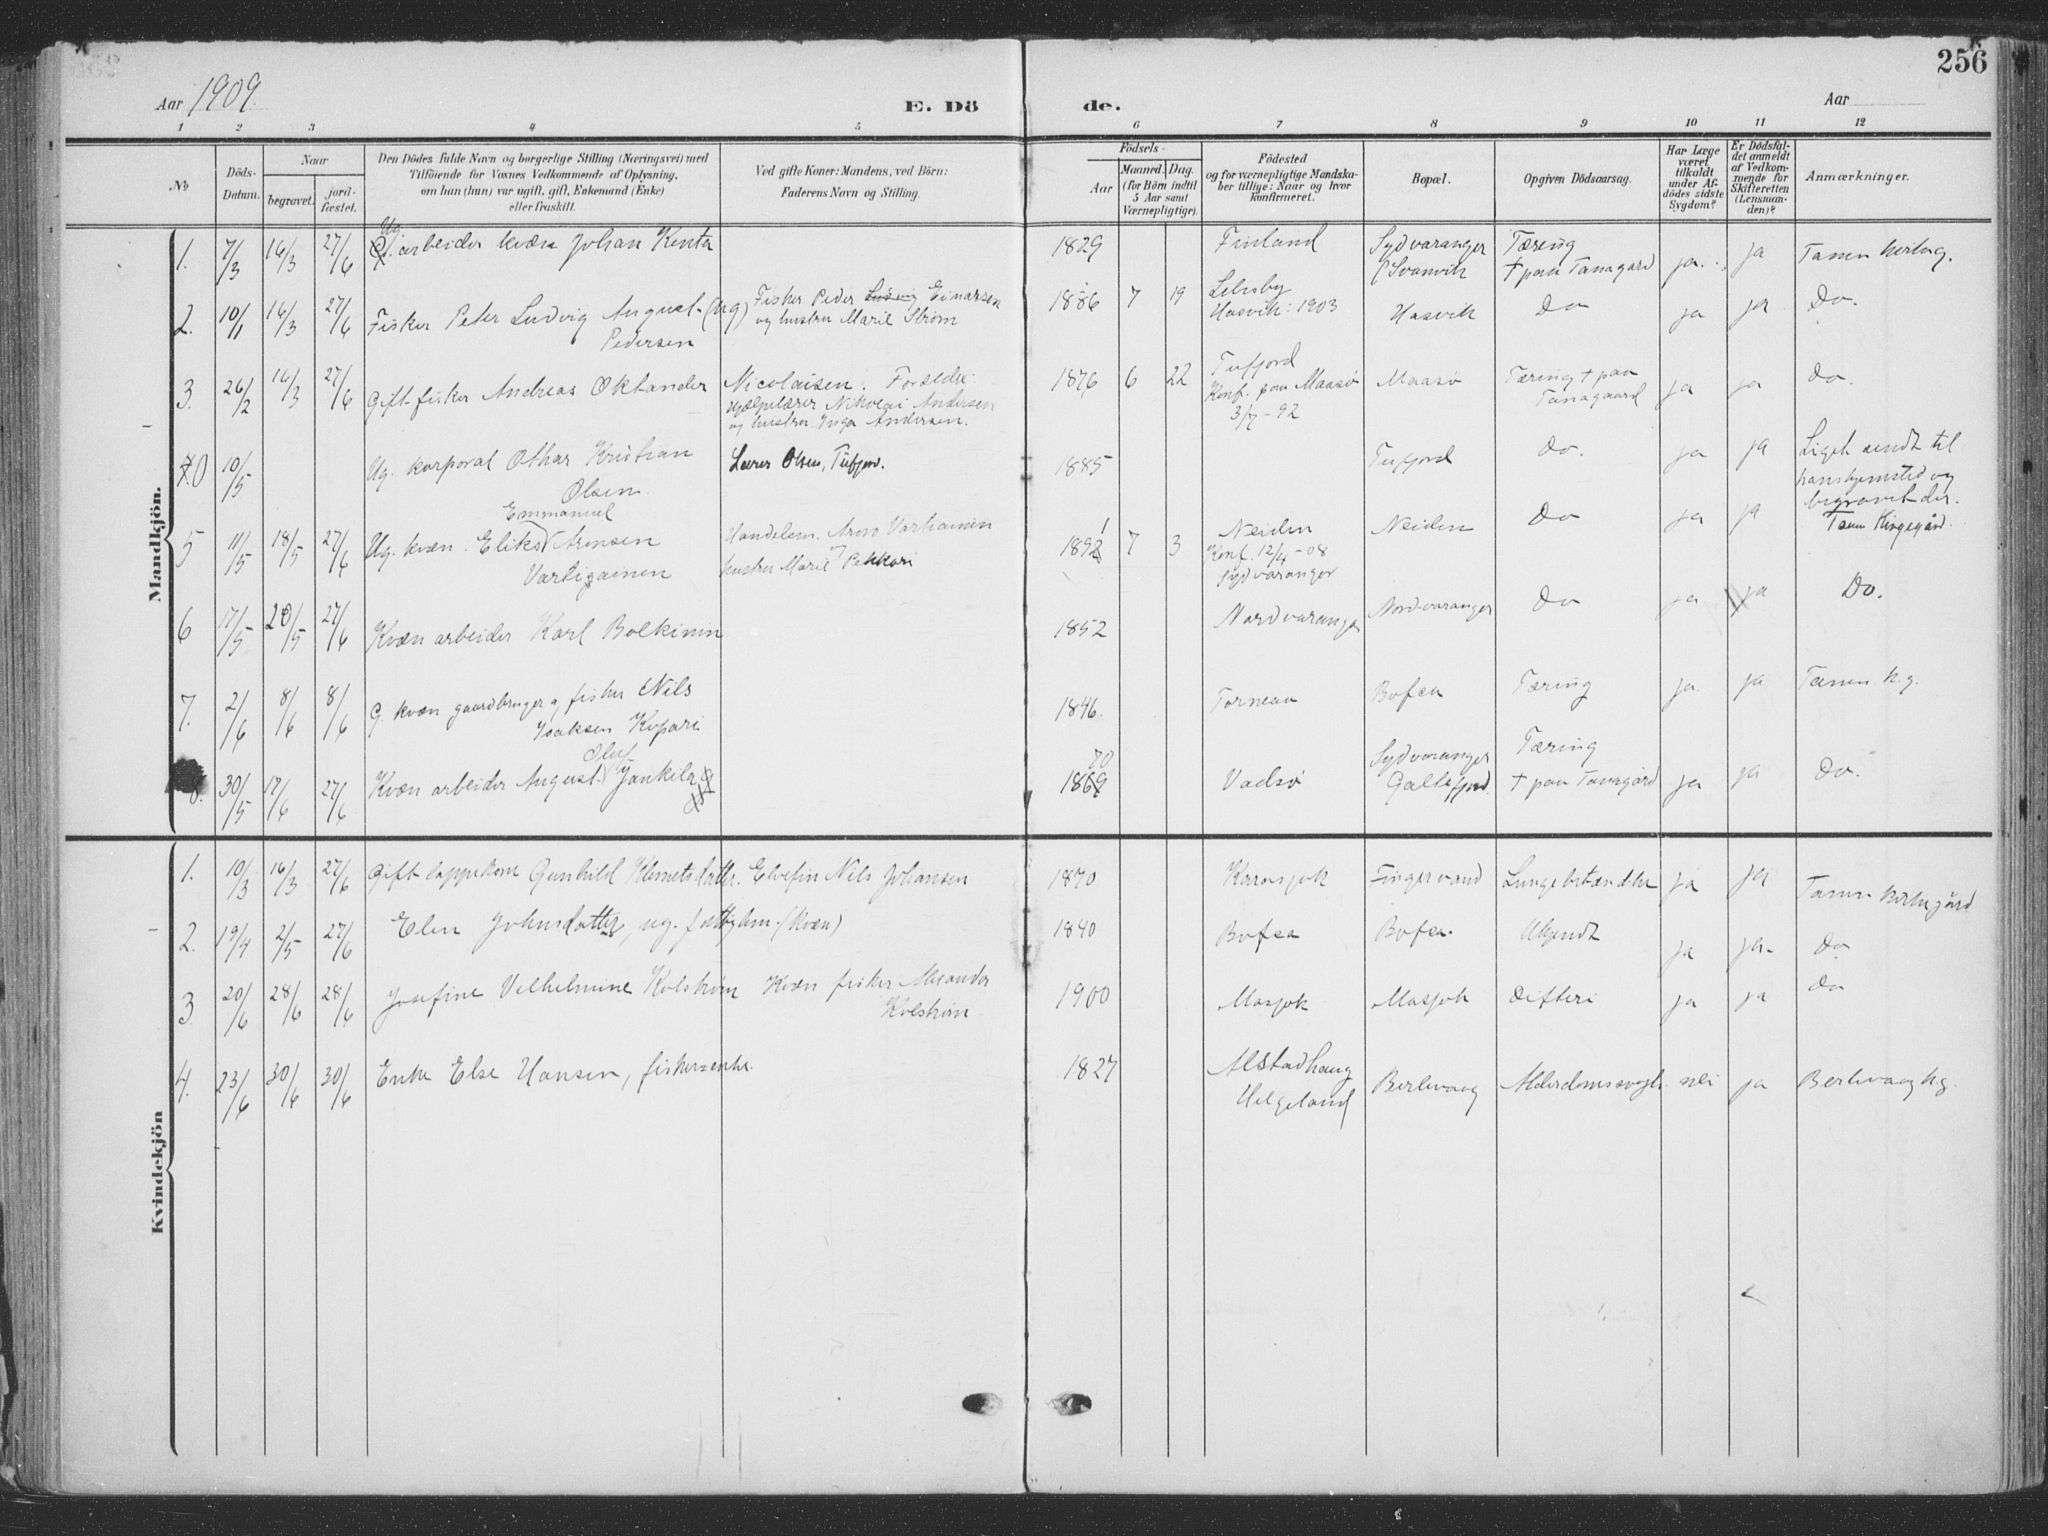 256
Aar 1909.
E. Dö de.
Aar
1 2 3 4 5 6 7 8 9 10 11 12
No
Döds-Datum.
Naar
begravet.
jord-fæstet.
Den Dödes fulde Navn og borgerlige Stilling (Næringsvei) med
Tilföiende for Voxnes Vedkommende af Oplysning,
om han (hun) var ugift, gift, Enkemand (Enke)
eller fraskilt.
Ved gifte Koner: Mandens, ved Börn:
Faderens Navn og Stilling.
Födsels-
Aar
Maaned. Dag.
(for Börn indtil
5 Aar samt
Værnepligtige).
Födested
og for værnepligtige Mandska-
ber tillige: Naar og hvor
konfirmeret.
Bopæl.
Opgiven Dödsaarsag.
Har Læge
været
tilkaldt
under Af-
dödes sidste
Sygdom?
Er Dödsfal-
det anmeldt
af Vedkom-
mende for
Skifteretten
(Lensman-
den)?
Anmærkninger.
Mandkjön.
1. 7/3 16/3 27/6 Ug. arbeider kvæn Johan Kenta 1829 Finland Sydvaranger Tæring ja. ja Tanen
Svanvik + paa Tanagård
2. 10/1 16/3 27/6 Fisker Peter Ludvig August (ug) Fisker Peder Ludvig Einarsen 1886 7 19 Lebesby Hasvik Do ja ja Do.
Pedersen og hustru Marie Strøm Hasvik: 1903
3. 26/2 16/3 27/6 Gift fisker Andreas Oktander Nicolaisen. Forældre: 1876 6 22 Tufjord Maasø Tæring + paa ja ja Do.
Hjælpelærer Nikolai Andersen Konf. paa Maasø Tanagaard
og hustru Inga Andersen. 3/7-92
10/5 Ug. korporal Othar Kristian Lærer Olsen, Tufjord. 1885 Tufjord Do. ja ja Liget sendt til
Olsen hanshjemsted og
begravet der.
Emmanuel
5 11/5 18/5 27/6 Ug. kvæn. Eliks Arensen Handelsm. 1892 7 3 Neiden Neiden Do ja ja Tanen Kirgegård.
hustru Marie Pekkari Konf. 12/4-08
Sydvaranger
6 17/5 20/5 27/6 Kvæn arbeider Karl Bolkinin 1852 Nordvaranger Nordvaranger Do ja ja Do.
7. 2/6 8/6 8/6 G. kvæn gaardbruger og fisker Nils 1846. Torneaa Bofea Tæring ja ja Tanen k.g.
Isaksen
Oluf 70
8. 30/5 17/6 27/6 Kvæn arbeider August Jankila 1869 Vadsø Sydvaranger Tæring ja ja Do.
+ paa Tanagård
Kvindekjön
1. 10/3 16/3 27/6 Gift lappekone Gunhild Klemetsdatter. Elvefin Nils Johansen 1870 Karasjok Fingervand Lungebetændelse ja ja Tanen Kirkegård
2. 19/4 2/5 27/6 Elen Johnsdatter, ug. fattiglem (kvæn) 1840 Bofea Bofea. Ukjendt ja ja. Do.
3 20/6 28/6 28/6 Josefine Vilhelmine Kolstrøm Kvæn fisker Alexander 1900 Masjok Masjok Difteri ja ja Do
Kolstrøm
4. 23/6 30/6 30/6 Enke Else Hansen, fiskerenke. 1827 Alstadhaug Berlevaag Alderdomssvagh. nei ja Berlevaag kg.
Helgeland